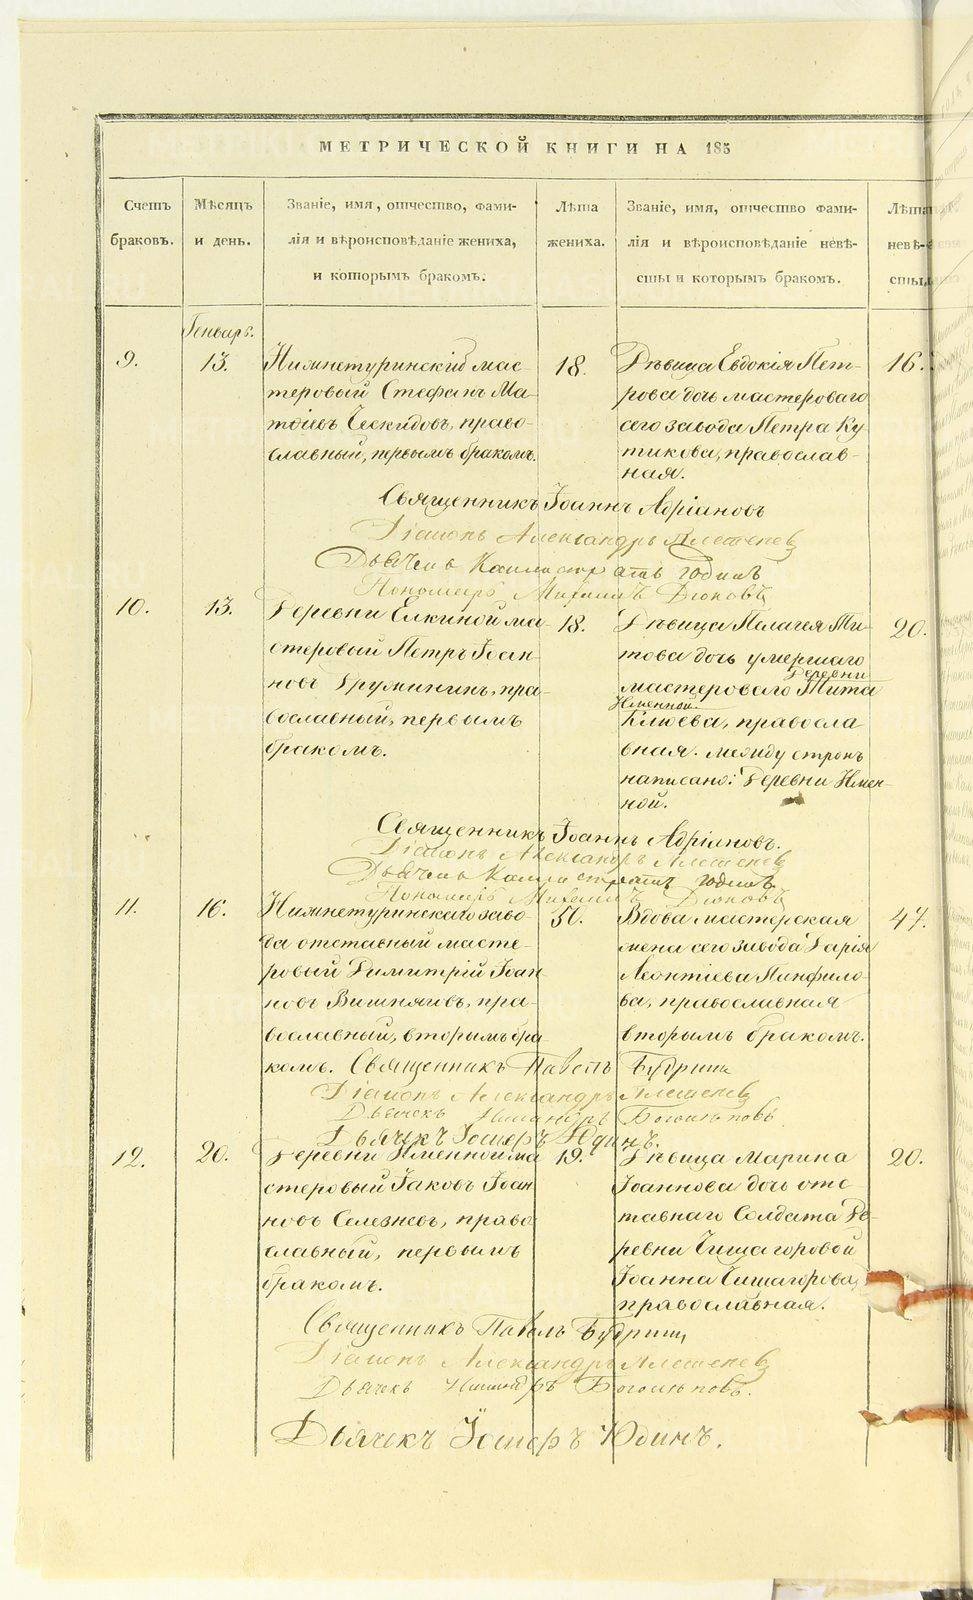 МЕТРИЧЕСКОЙ КНИГИ НА 185
Счетъ
браковъ.
Мѣсяцъ
и день.
Званіе, имя, отчество, фами-
лія и вѣроисповѣданіе жениха,
и которымъ бракомъ.
Лѣта
жениха.
Званіе, имя, отчество фами-
лія и вѣроисповѣданіе невѣ-
сты и которымъ бракомъ.
Лѣта
невѣ-
сты.
Генварь.
9.
13.
Нижнетуринскій мас
теровый Стефанъ Ма-
тѳіевъ Ческидовъ, право-
славный, первымъ бракомъ.
18.
Дѣвица Евдокія Пет-
рова дочь мастероваго
сего завода Петра Ку
тикова, православ-
ная.
16.
Священникъ Іоаннъ Адріановъ
Діаконъ Александръ
Дьячекъ Каллистратъ Юдинъ
Пономарь Михаилъ Дюковъ
10.
13.
Деревни Елкиной ма-
стеровый Петръ Іоан-
новъ Дружининъ, пра-
вославный, первымъ
бракомъ.
18.
Дѣвица Пелагея Ти-
това дочь умершаго
Деревни
мастероваго Тита
Именной
Клюева, правосла
вная. между строкъ
написано: Деревни Имен-
ной.
20.
Священникъ Іоаннъ Адріановъ.
Діаконъ Александръ
Дьячекъ Каллистратъ Юдинъ
Пономарь Михаилъ Дюковъ
11.
16.
Нижнетуринскаго заво
да отставный масте-
ровый Димитрій Іоан
новъ Вишняговъ, пра-
вославный, вторымъ бра-
комъ. Священникъ Павелъ Будринъ
50.
Вдова мастерская
жена сего завода Дарія
Леонтіева Панфило-
ва, православная
вторымъ бракомъ.
47.
Діаконъ Александръ
Дьячекъ
Дьячекъ Іосифъ Юдинъ.
12.
20.
Деревни Именной ма
стеровый Іаковъ Іоан
новъ Селезневъ, право
славный, первымъ
бракомъ.
19.
Дѣвица Марина
Іоаннова дочь отс
тавнаго Солдата Де-
ревни Чищагоровой
Іоанна Чищагорова,
православная.
20.
Священникъ Павелъ Будринъ
Діаконъ Александръ
Дьячекъ
Дьячекъ Іосифъ Юдинъ.